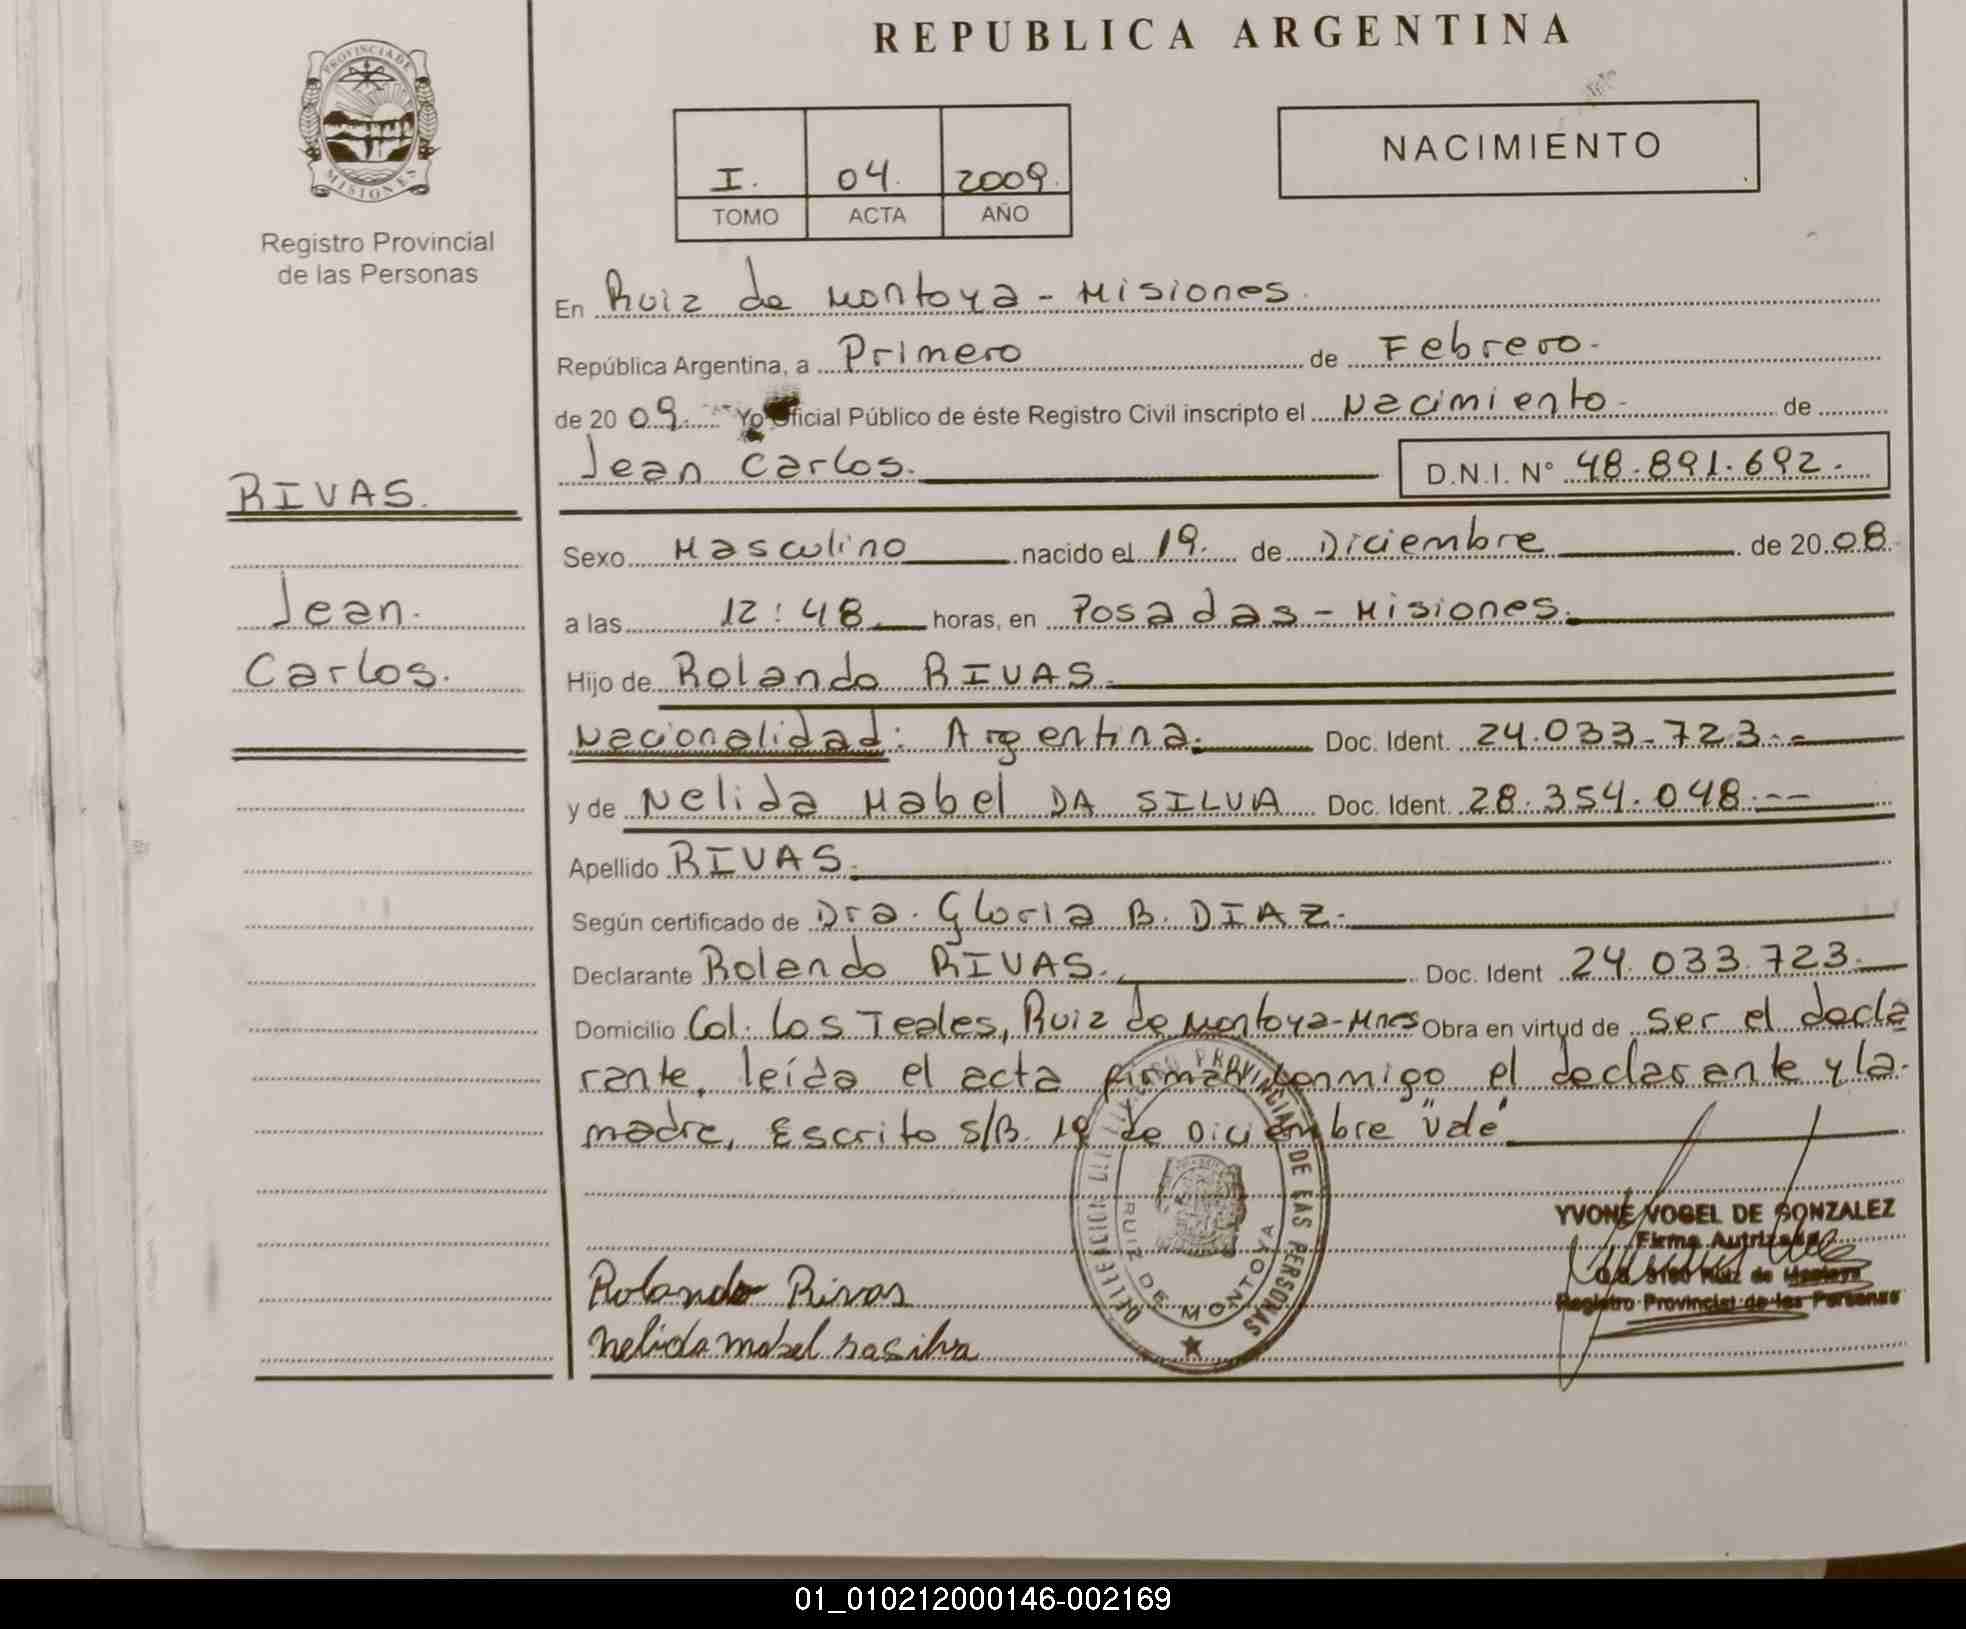 REPUBLICA ARGENTINA
PROVINCIA DE
MISIONES
Registro Provincial
de las Personas
I. 04. 2009.
TOMO ACTA AÑO
NACIMIENTO
En Ruiz de Montoya - Misiones.
República Argentina, a Primero de Febrero.
de 20 09. Yo Oficial Público de éste Registro Civil inscripto el Nacimiento de
Jean Carlos. D.N.I. N° 48.891.692.
RIVAS.
Jean.
Carlos.
Sexo Masculino nacido el 19. de Diciembre de 20 08
a las 12:48 horas, en Posadas - Misiones.
Hijo de Rolando RIVAS.
Nacionalidad: Argentina. Doc. Ident. 24.033.723.-
y de Nelida Mabel DA SILVA Doc. Ident. 28.354.048.--
Apellido RIVAS.
Según certificado de Dra. Gloria B. DIAZ.
Declarante Rolando RIVAS. Doc. Ident 24.033.723.
Domicilio Col. Los Teales, Ruiz de Montoya-Mnes Obra en virtud de ser el decla
rante, leída el acta firman conmigo el declarante y la
madre, Escrito s/B. 19 de Diciembre "vale"
PROVINCIAL DE LAS PERSONAS
RUIZ DE MONTOYA
YVONE VOGEL DE GONZALEZ
Firma Autrizada
Ruiz de Montoya
Registro Provincial de las Personas
Rolando Rivas
Nelida mabel Dasilva
01_010212000146-002169